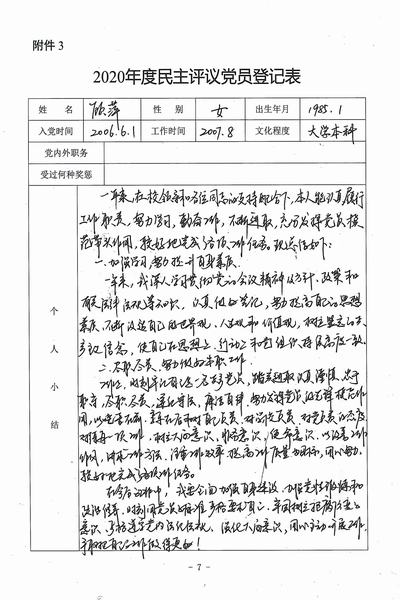 附件 3
2020年度民主评议党员登记表
姓 名 顾萍 性 别 女 出生年月 1985.1
入党时间 2006.6.1 工作时间 2007.8 文化程度 大学本科
党内外职务
受过何种奖惩
个人小结
一年来，在校领导和各位同志的支持配合下，本人能认真履行
工作职责，努力学习，勤奋工作，不断进取，充分发挥党员模
范带头作用，较好地完成各项工作任务。现总结如下：
一、加强学习，努力提升自身素质。
一年来，我深入学习贯彻党的会议精神及方针、政策和
法律法规等知识，认真做好笔记，努力提高自己的思想
素质，不断改造自己的世界观、人生观和价值观，树立坚定的
信念，使自己在思想上、行动上和党组织保持高度一致。
二、尽职尽责，努力做好本职工作。
工作上，时刻牢记自己是一名共产党员，
职守，尽职尽责，遵纪守法，廉洁自律，努力发挥党员的先锋模范作
用，
对待每一项工作，树立大局意识、服务意识、使命意识，以改进工作
作风，讲求工作方法，注重工作效率，提高工作质量为目标，
较好地完成了各项工作任务。
在今后的工作中，我要全面加强自身建设，加强党性锻炼和
政治修养，时刻用党员的标准严格要求自己，牢固树立
意识，严格遵守党的法纪法规，强化大局意识，用心主动开展工作，
争取把自己的工作做得更好！
- 7 -